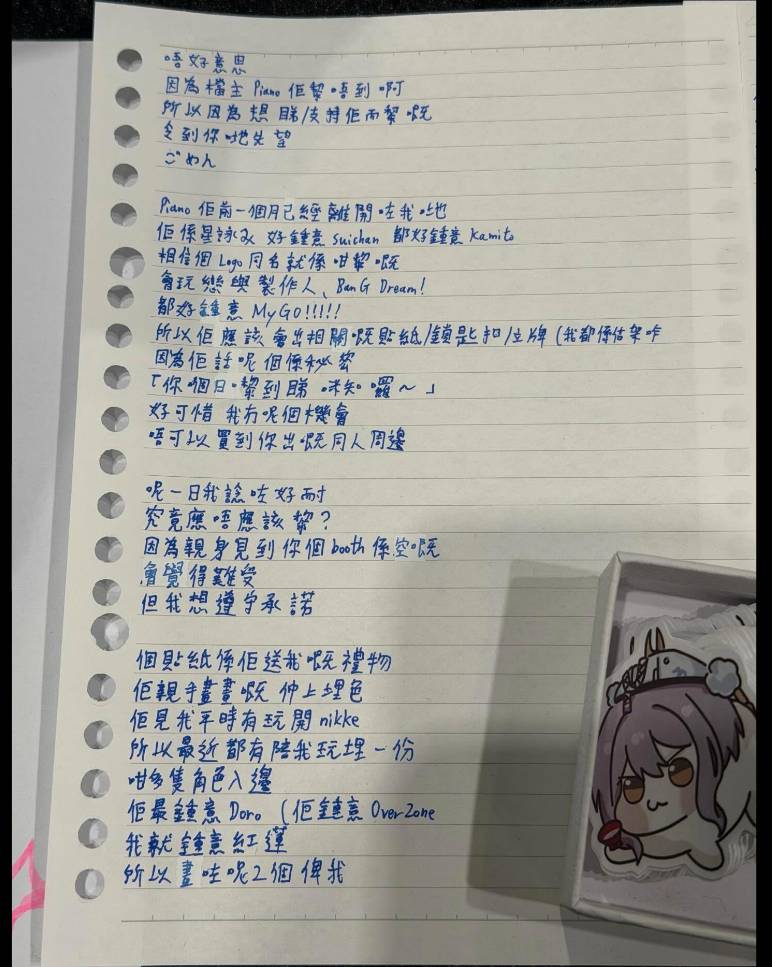 唔好意思
因為檔主 Piano 佢黎唔到啊
所以因為想睇/支持佢而黎嘅
令到你哋失望
ごめん
Piano 佢前一個月已經離開咗我哋
佢係星詠み 好鍾意 suichan 都好鍾意 Kamito
相信個 Logo 同名就係咁黎嘅
會玩戀與製作人、BanG Dream!
都好鍾意 MyGO!!!!!
所以佢應該會出相關嘅貼紙/鎖匙扣/立牌 (我都係估架咋
因為佢話呢個係秘密
「你嗰日黎到睇咪知囉～」
好可惜 我冇呢個機會
唔可以買到你出嘅同人周邊
呢一日我諗咗好耐
究竟應唔應該黎？
因為親身見到你個 booth 係空嘅
會覺得難受
但我想遵守承諾
個貼紙係佢送我嘅禮物
佢親手畫畫嘅 仲上埋色
佢見我平時有玩開 nikke
所以最近都有陪我玩埋一份
咁多隻角色入邊
佢最鍾意 Doro (佢鍾意 OverZone
我就鍾意紅蓮
所以畫咗呢2個俾我